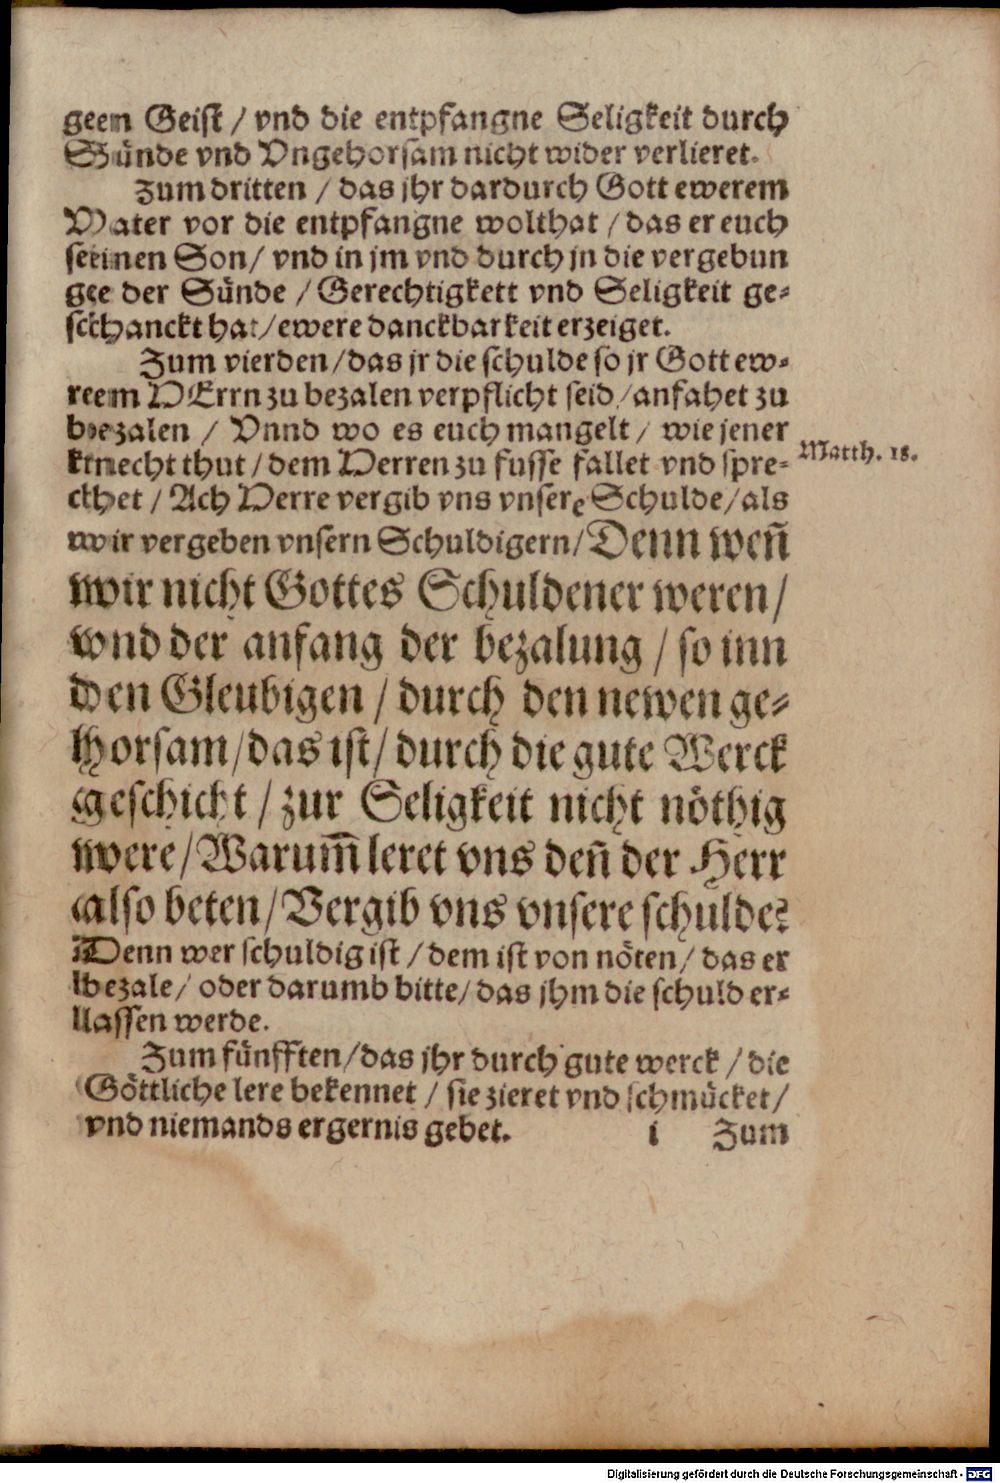 gen Geist / vnd die entpfangne Seligkeit durch
Sünde vnd Vngehorsam nicht wider verlieret.
Zum dritten / das jhr dardurch Gott ewerem
Vater vor die entpfangne wolthat / das er euch
seinen Son / vnd in jm vnd durch jn die vergebun
ge der Sünde / Gerechtigkett vnd Seligkeit ge-
schanckt hat / ewere danckbarkeit erzeiget.
Zum vierden / das jr die schulde so jr Gott ew-
rem HErrn zu bezalen verpflicht seid / anfahet zu
bezalen / Vnnd wo es euch mangelt / wie jener
knecht thut / dem Herren zu fusse fallet vnd spre-
Matth. 18.
chet / Ach Herre vergib vns vnsere Schulde / als
wir vergeben vnsern Schuldigern / Denn weñ
wir nicht Gottes Schuldener weren /
vnd der anfang der bezalung / so inn
den Gleubigen / durch den newen ge-
horsam / das ist / durch die gute Werck
geschicht / zur Seligkeit nicht nöthig
were / Warum̃ leret vns deñ der Herr
also beten / Vergib vns vnsere schulde?
Denn wer schuldig ist / dem ist von nöten / das er
bezale / oder darumb bitte / das jhm die schuld er-
lassen werde.
Zum fünfften / das jhr durch gute werck / die
Göttliche lere bekennet / sie zieret vnd schmücket /
vnd niemands ergernis gebet.
i Zum
Digitalisierung gefördert durch die Deutsche Forschungsgemeinschaft - DFG